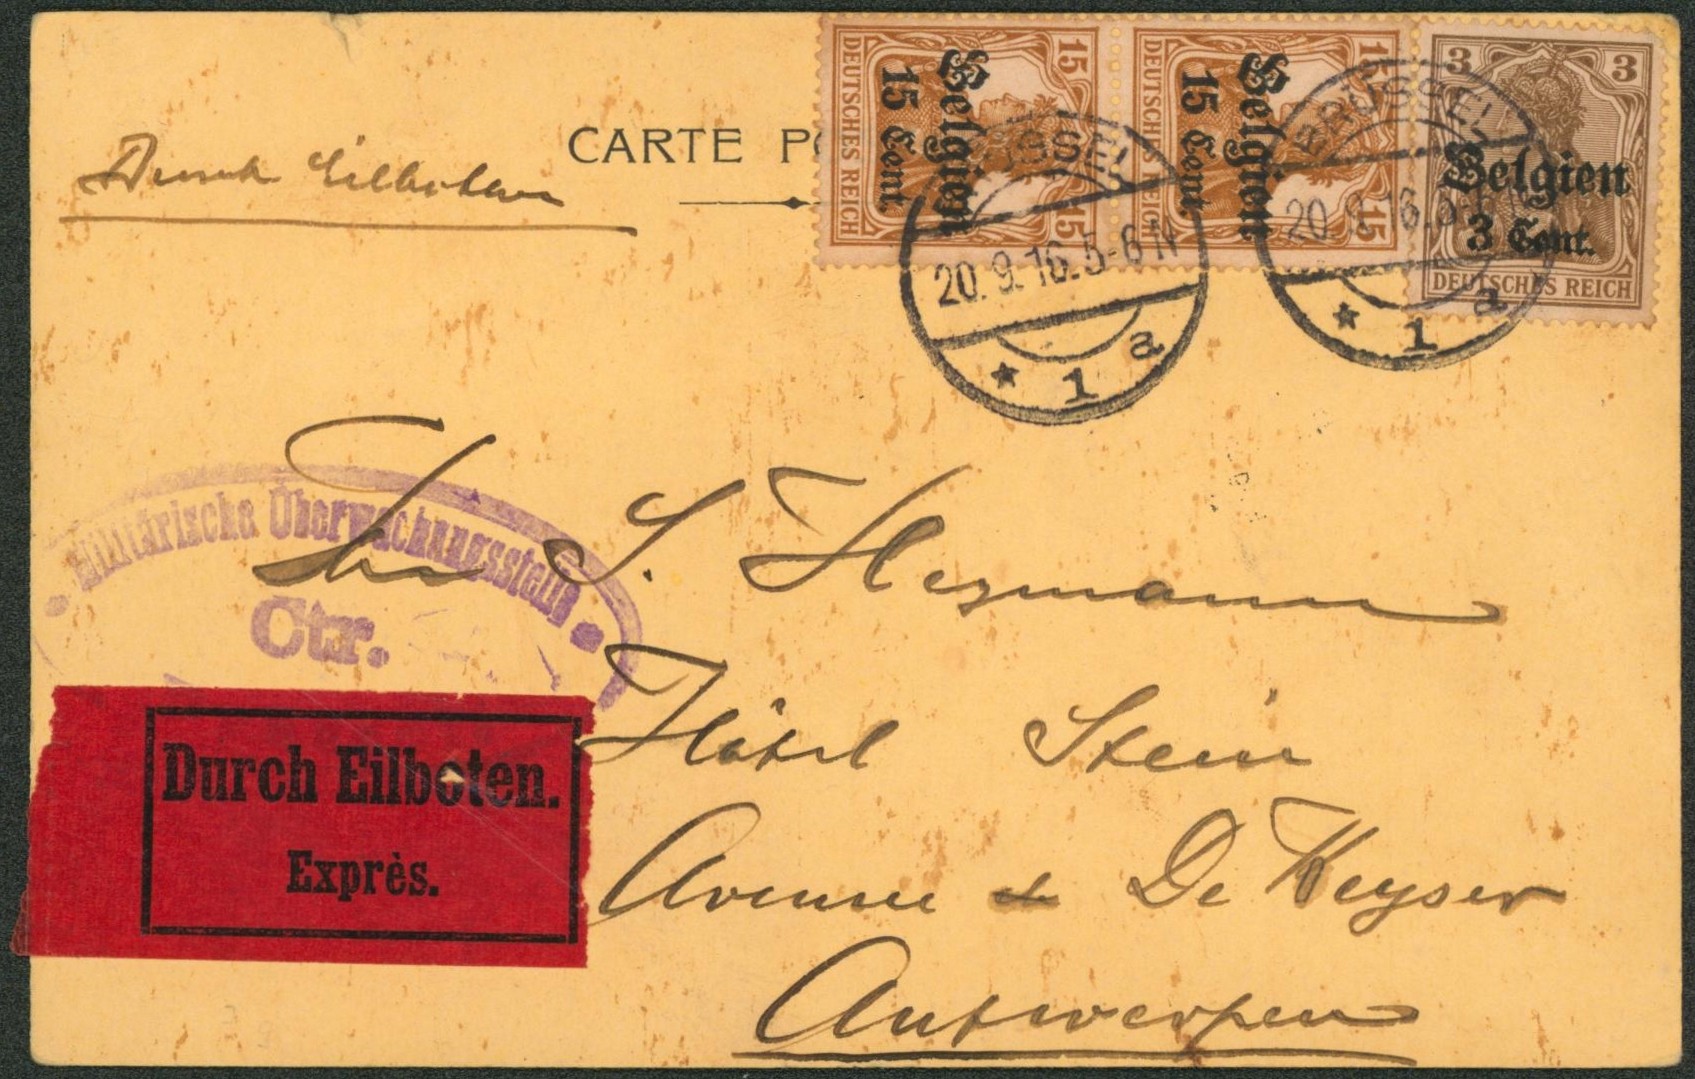 CARTE PO
Durch Eilboten
15 15
Belgien
15 Cent.
DEUTSCHES REICH
15 15
Belgien
15 Cent.
DEUTSCHES REICH
3 3
Belgien
3 Cent.
DEUTSCHES REICH
BRÜSSEL
20.9.16.5-6N
* 1 a
BRÜSSEL
20.9.16.5-
* 1 a
Militärische Überwachungsstelle
Ctr.
S. Hezmann
Hôtel Stein
Avenue De Keyser
Antwerpen
Durch Eilboten.
Exprès.